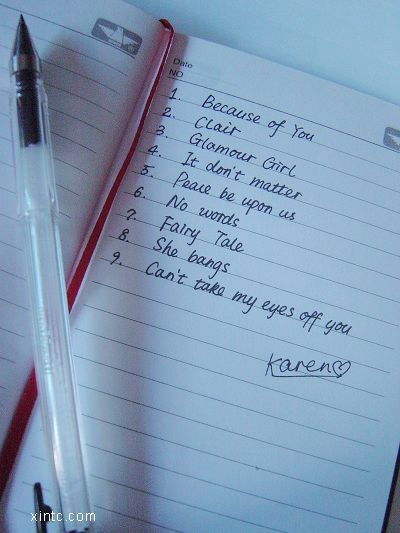 Date
NO
1. Because of You
2. Clair
3. Glamour Girl
4. It don't matter
5. Peace be upon us
6. No words
7. Fairy Tale
8. She bangs
9. Can't take my eyes off you
Karen♡
xintc.com